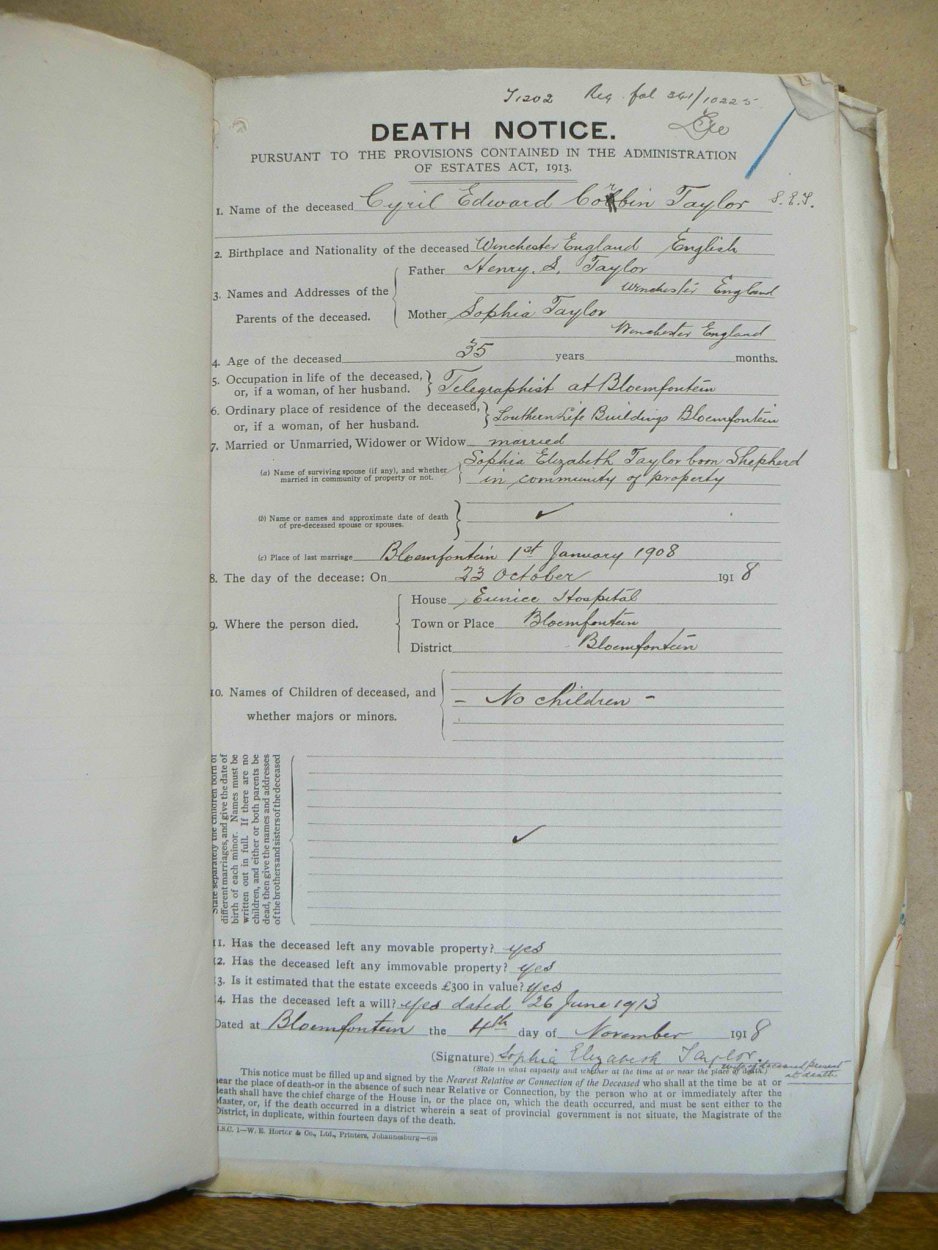 T1202 Reg. fol 261/10225
DEATH NOTICE.
PURSUANT TO THE PROVISIONS CONTAINED IN THE ADMINISTRATION
OF ESTATES ACT, 1913.
1. Name of the deceased Cyril Edward Corbin Taylor S.E.T.
2. Birthplace and Nationality of the deceased Winchester England English
3. Names and Addresses of the Parents of the deceased.
Father Henry. S. Taylor
Winchester England
Mother Sophia Taylor
Winchester England
4. Age of the deceased 35 years months.
5. Occupation in life of the deceased, or, if a woman, of her husband. Telegraphist at Bloemfontein
6. Ordinary place of residence of the deceased, or, if a woman, of her husband. Southern Life Buildings Bloemfontein
7. Married or Unmarried, Widower or Widow married
(a) Name of surviving spouse (if any), and whether married in community of property or not. Sophia Elizabeth Taylor born Shepherd
in community of property
(b) Name or names and approximate date of death of pre-deceased spouse or spouses. ✓
(c) Place of last marriage Bloemfontein 1st January 1908
8. The day of the decease: On 23 October 1918
9. Where the person died.
House Eunice Hospital
Town or Place Bloemfontein
District Bloemfontein
10. Names of Children of deceased, and whether majors or minors.
- No children -
State separately the children born of
different marriages, and give the date of
birth of each minor. Names must be
written out in full. If there are no
children, and either or both parents be
dead, then give the names and addresses
of the brothers and sisters of the deceased
✓
11. Has the deceased left any movable property? yes
12. Has the deceased left any immovable property? yes
13. Is it estimated that the estate exceeds £300 in value? yes
14. Has the deceased left a will? yes dated 26 June 1913
Dated at Bloemfontein the 4th day of November 1918
(Signature) Sophia Elizabeth Taylor.
(State in what capacity and whether at the time at or near the place of death.)
wife of deceased present
at death.
This notice must be filled up and signed by the Nearest Relative or Connection of the Deceased who shall at the time be at or
near the place of death—or in the absence of such near Relative or Connection, by the person who at or immediately after the
death shall have the chief charge of the House in, or the place on, which the death occurred, and must be sent either to the
Master, or, if the death occurred in a district wherein a seat of provincial government is not situate, the Magistrate of the
District, in duplicate, within fourteen days of the death.
S.C. 1—W. E. Hortor & Co., Ltd., Printers, Johannesburg—